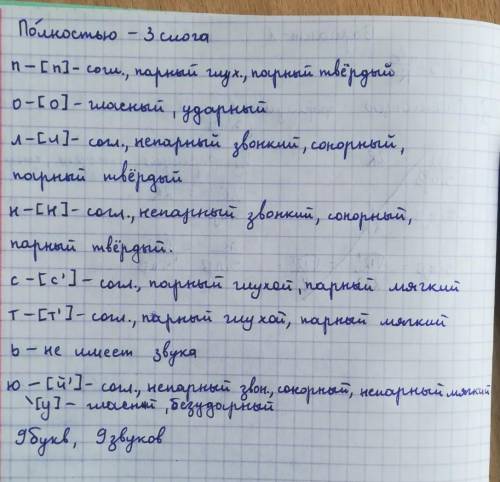 По́лностью – 3 слога
п – [п] – согл., парный глух., парный твёрдый
о – [о] – гласный, ударный
л – [л] – согл., непарный звонкий, сонорный,
парный твёрдый
н – [н] – согл., непарный звонкий, сонорный,
парный твёрдый.
с – [с'] – согл., парный глухой, парный мягкий
т – [т'] – согл., парный глухой, парный мягкий
ь – не имеет звука
ю – [й'] – согл., непарный звон., сонорный, непарный мягкий
\[у] – гласный, безударный
9 букв, 9 звуков